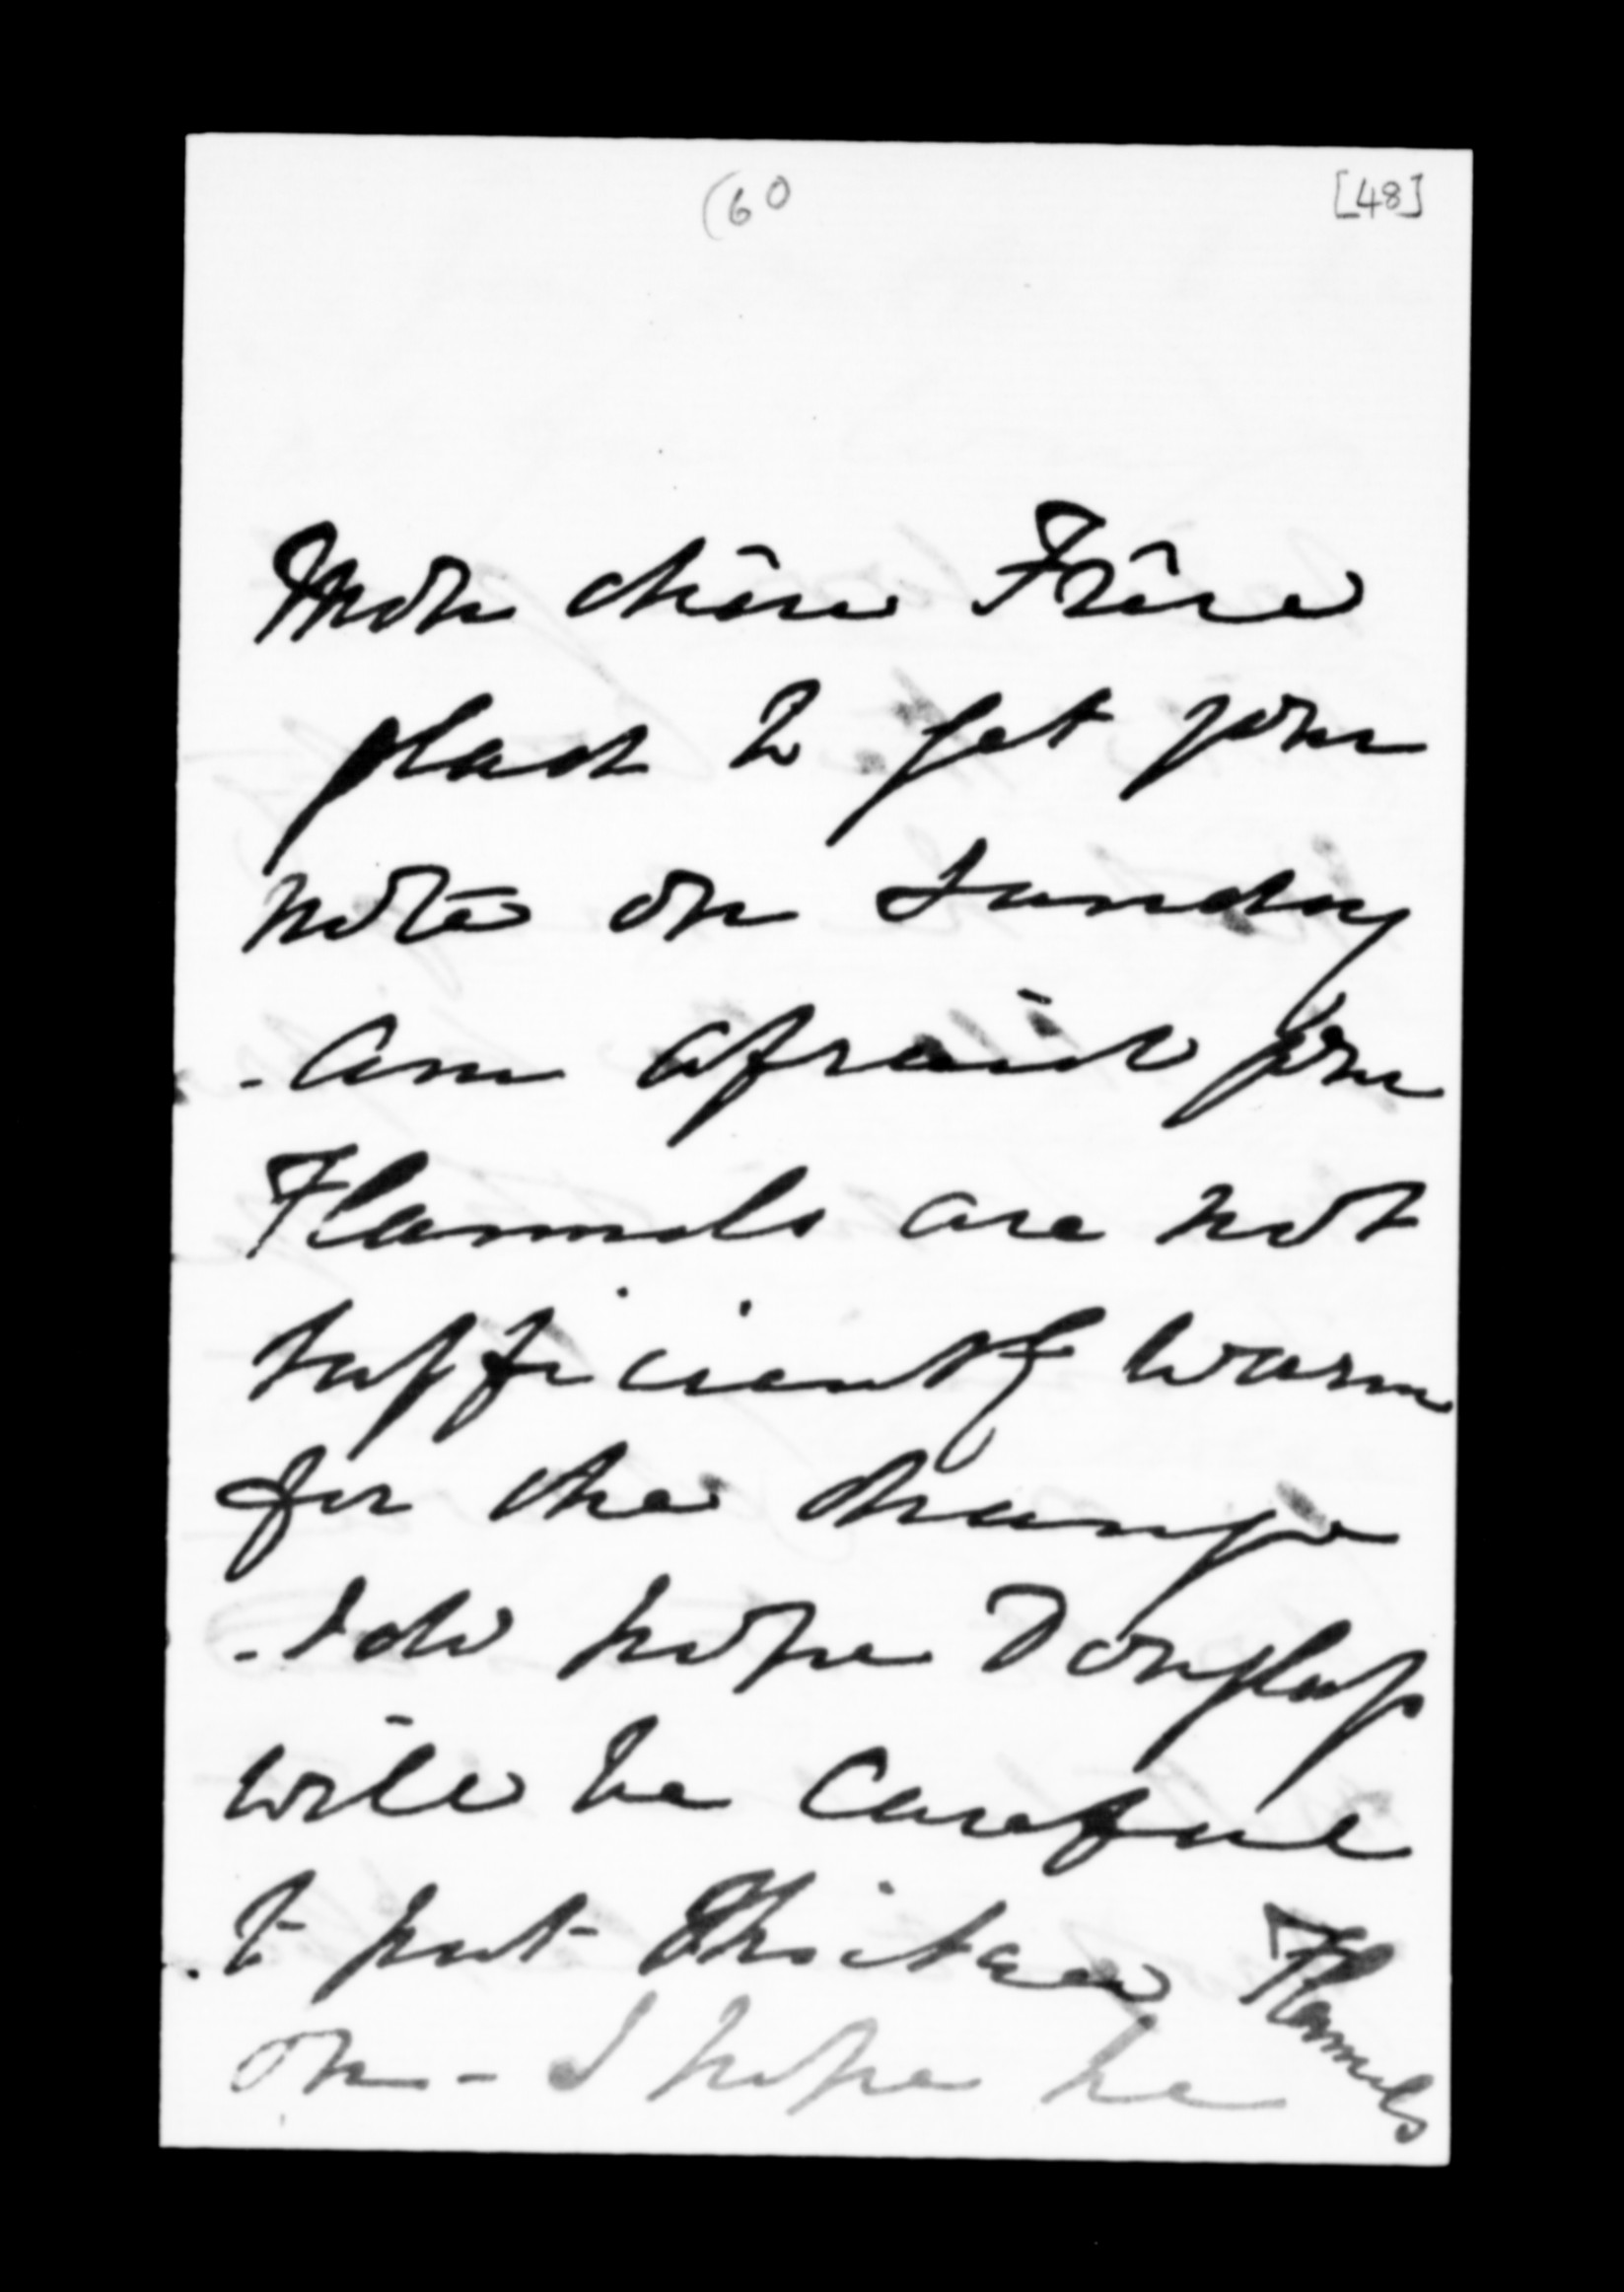 (60
[48]
Mon chère Frère
glad 2 get your
note on Sunday
- am afraid your
Flannels are not
sufficiently warm
for the change
- I do hope Douglass
will be careful
to put thicker Flannels
on - I hope he